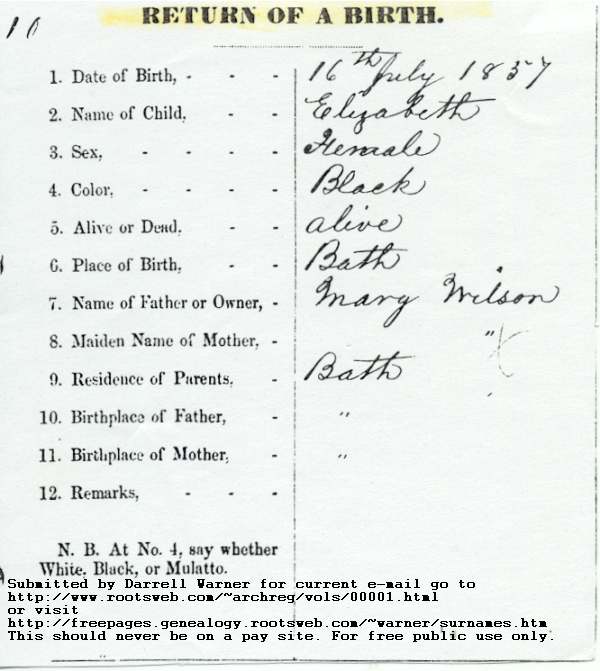 10
RETURN OF A BIRTH.
1. Date of Birth, - - - 16th July 1857
2. Name of Child, - - Elizabeth
3. Sex, - - - - Female
4. Color, - - - - Black
5. Alive or Dead, - - alive
6. Place of Birth, - - Bath
7. Name of Father or Owner, - Mary Wilson
8. Maiden Name of Mother, - "
9. Residence of Parents, - Bath
10. Birthplace of Father, - "
11. Birthplace of Mother, - "
12. Remarks, - - -
N. B. At No. 4, say whether
White, Black, or Mulatto.
Submitted by Darrell Warner for current e-mail go to
http://www.rootsweb.com/~archreg/vols/00001.html
or visit
http://freepages.genealogy.rootsweb.com/~warner/surnames.htm
This should never be on a pay site. For free public use only.